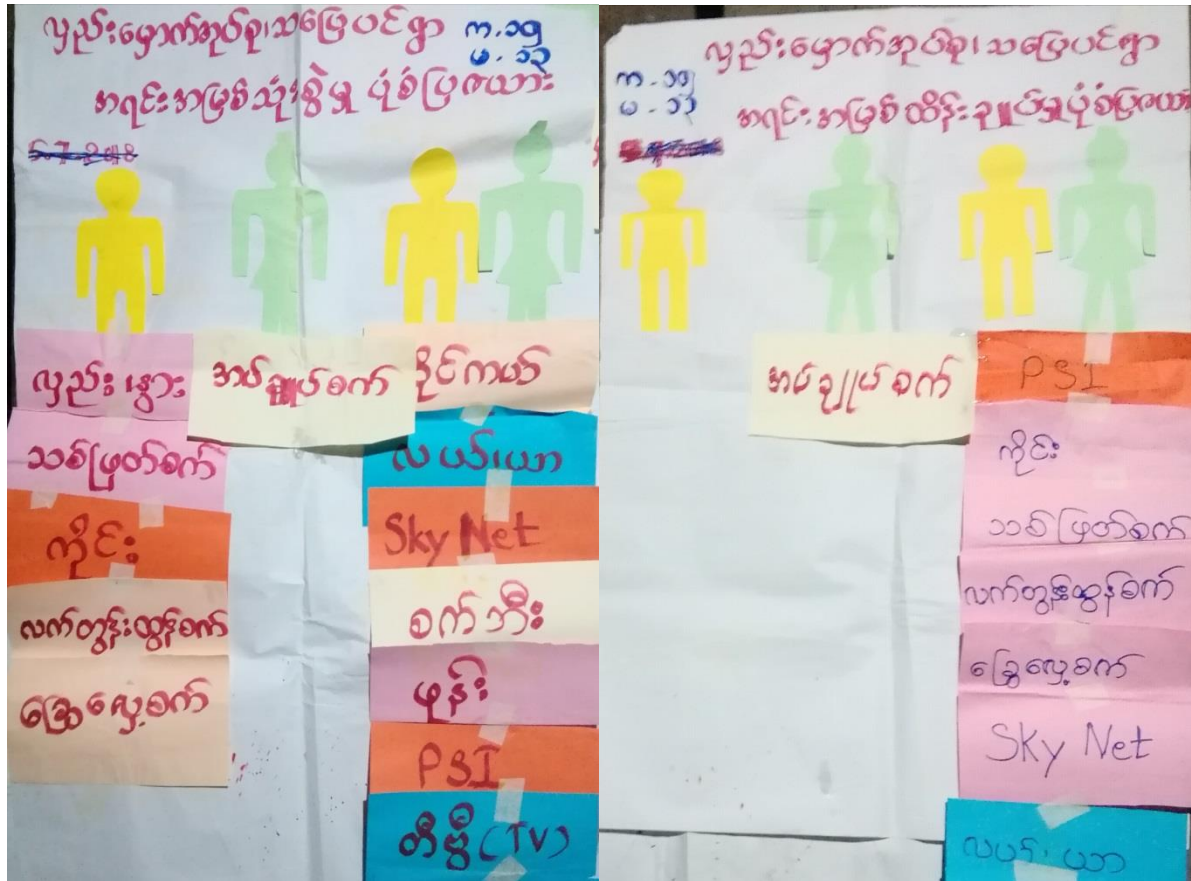 လှည်းမှောက်အုပ်စု၊သပြေပင်ရွာ
က.၁၅
မ.၁၃
အရင်းအမြစ်သုံးစွဲမှု ပုံစံပြဇယား
လှည်း၊နွား
သစ်ဖြတ်စက်
ကိုင်း
လက်တွန်းထွန်စက်
ခြွေလှေ့စက်
အပ်ချုပ်စက်
ဆိုင်ကယ်
လယ်၊ယာ
Sky Net
စက်ဘီး
ဖုန်း
PSI
တီဗွီ (TV)
လှည်းမှောက်အုပ်စု၊သပြေပင်ရွာ
က.၁၅
မ.၁၃
အရင်းအမြစ်ထိန်းချုပ်မှုပုံစံပြဇယား
အပ်ချုပ်စက်
PSI
ကိုင်း
သစ်ဖြတ်စက်
လက်တွန်းထွန်စက်
ခြွေလှေ့စက်
Sky Net
လယ်၊ယာ